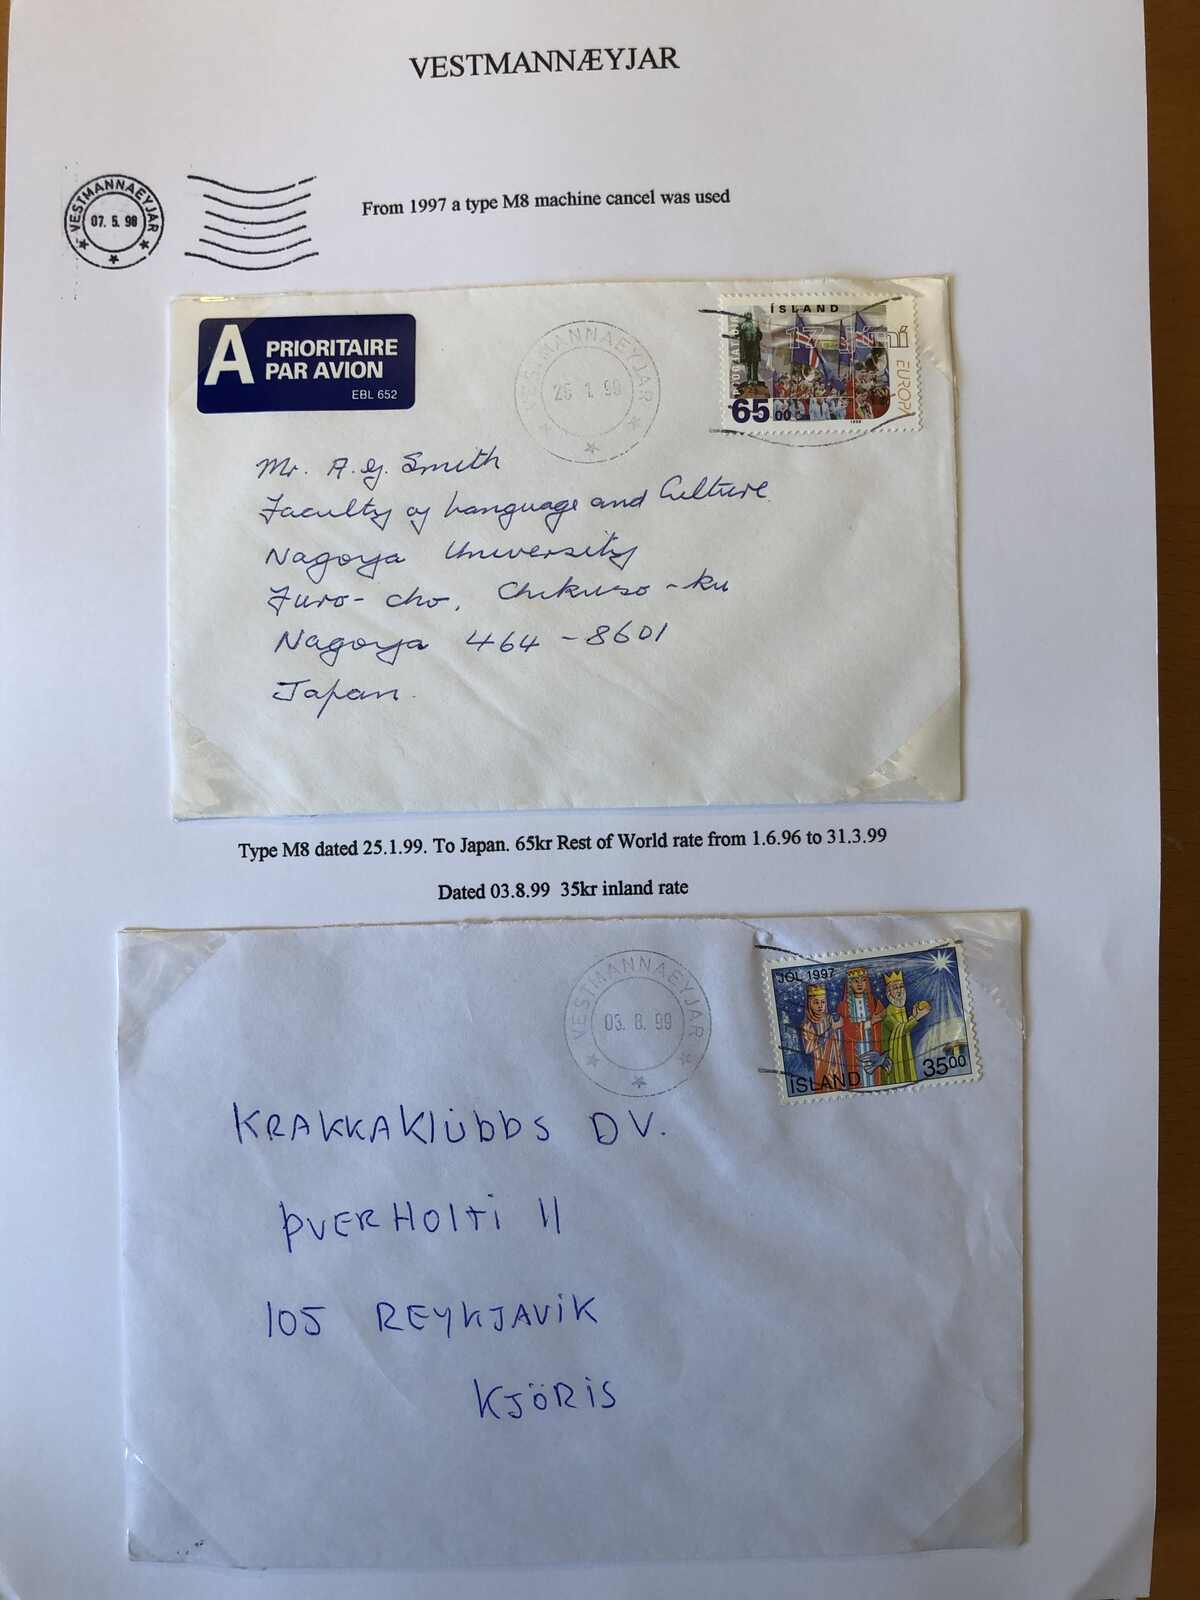 VESTMANNÆYJAR
VESTMANNAEYJAR
07. 5. 98
From 1997 a type M8 machine cancel was used
A PRIORITAIRE
PAR AVION
EBL 652
VESTMANNAEYJAR
25 1. 99
ÍSLAND
17. júní
EUROPA
65 00
1998
Mr. A. G. Smith
Faculty of Language and Culture
Nagoya University
Furo-cho, Chikusa-ku
Nagoya 464-8601
Japan.
Type M8 dated 25.1.99. To Japan. 65kr Rest of World rate from 1.6.96 to 31.3.99
Dated 03.8.99 35kr inland rate
VESTMANNAEYJAR
03. 8. 99
JÓL 1997
ÍSLAND
35 00
KRAKKAKlÜbbS DV.
ÞVERHOlTi 11
105 REYKJAViK
KJÖRiS